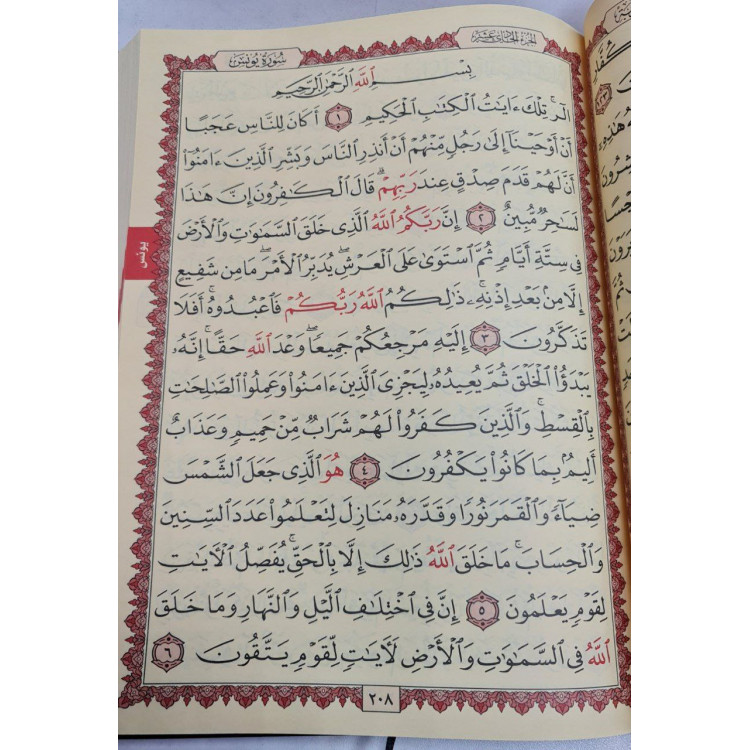 سُورَةُ يُونُسَ
الجُزْءُ الحَادِي عَشَرَ
بِسْمِ ٱللَّهِ ٱلرَّحْمَٰنِ ٱلرَّحِيمِ
الٓرۚ تِلْكَ ءَايَٰتُ ٱلْكِتَٰبِ ٱلْحَكِيمِ ١ أَكَانَ لِلنَّاسِ عَجَبًا
أَنْ أَوْحَيْنَآ إِلَىٰ رَجُلٍ مِّنْهُمْ أَنْ أَنذِرِ ٱلنَّاسَ وَبَشِّرِ ٱلَّذِينَ ءَامَنُوٓا۟
أَنَّ لَهُمْ قَدَمَ صِدْقٍ عِندَ رَبِّهِمْۗ قَالَ ٱلْكَٰفِرُونَ إِنَّ هَٰذَا
لَسَٰحِرٌ مُّبِينٌ ٢ إِنَّ رَبَّكُمُ ٱللَّهُ ٱلَّذِى خَلَقَ ٱلسَّمَٰوَٰتِ وَٱلْأَرْضَ
فِى سِتَّةِ أَيَّامٍ ثُمَّ ٱسْتَوَىٰ عَلَى ٱلْعَرْشِۖ يُدَبِّرُ ٱلْأَمْرَۖ مَا مِن شَفِيعٍ
إِلَّا مِنۢ بَعْدِ إِذْنِهِۦۚ ذَٰلِكُمُ ٱللَّهُ رَبُّكُمْ فَٱعْبُدُوهُۚ أَفَلَا
تَذَكَّرُونَ ٣ إِلَيْهِ مَرْجِعُكُمْ جَمِيعًاۖ وَعْدَ ٱللَّهِ حَقًّاۚ إِنَّهُۥ
يَبْدَؤُا۟ ٱلْخَلْقَ ثُمَّ يُعِيدُهُۥ لِيَجْزِىَ ٱلَّذِينَ ءَامَنُوا۟ وَعَمِلُوا۟ ٱلصَّٰلِحَٰتِ
بِٱلْقِسْطِۚ وَٱلَّذِينَ كَفَرُوا۟ لَهُمْ شَرَابٌ مِّنْ حَمِيمٍ وَعَذَابٌ
أَلِيمٌۢ بِمَا كَانُوا۟ يَكْفُرُونَ ٤ هُوَ ٱلَّذِى جَعَلَ ٱلشَّمْسَ
ضِيَآءً وَٱلْقَمَرَ نُورًا وَقَدَّرَهُۥ مَنَازِلَ لِتَعْلَمُوا۟ عَدَدَ ٱلسِّنِينَ
وَٱلْحِسَابَۚ مَا خَلَقَ ٱللَّهُ ذَٰلِكَ إِلَّا بِٱلْحَقِّۚ يُفَصِّلُ ٱلْءَايَٰتِ
لِقَوْمٍ يَعْلَمُونَ ٥ إِنَّ فِى ٱخْتِلَٰفِ ٱلَّيْلِ وَٱلنَّهَارِ وَمَا خَلَقَ
ٱللَّهُ فِى ٱلسَّمَٰوَٰتِ وَٱلْأَرْضِ لَءَايَٰتٍ لِّقَوْمٍ يَتَّقُونَ ٦
٢٠٨
يونس